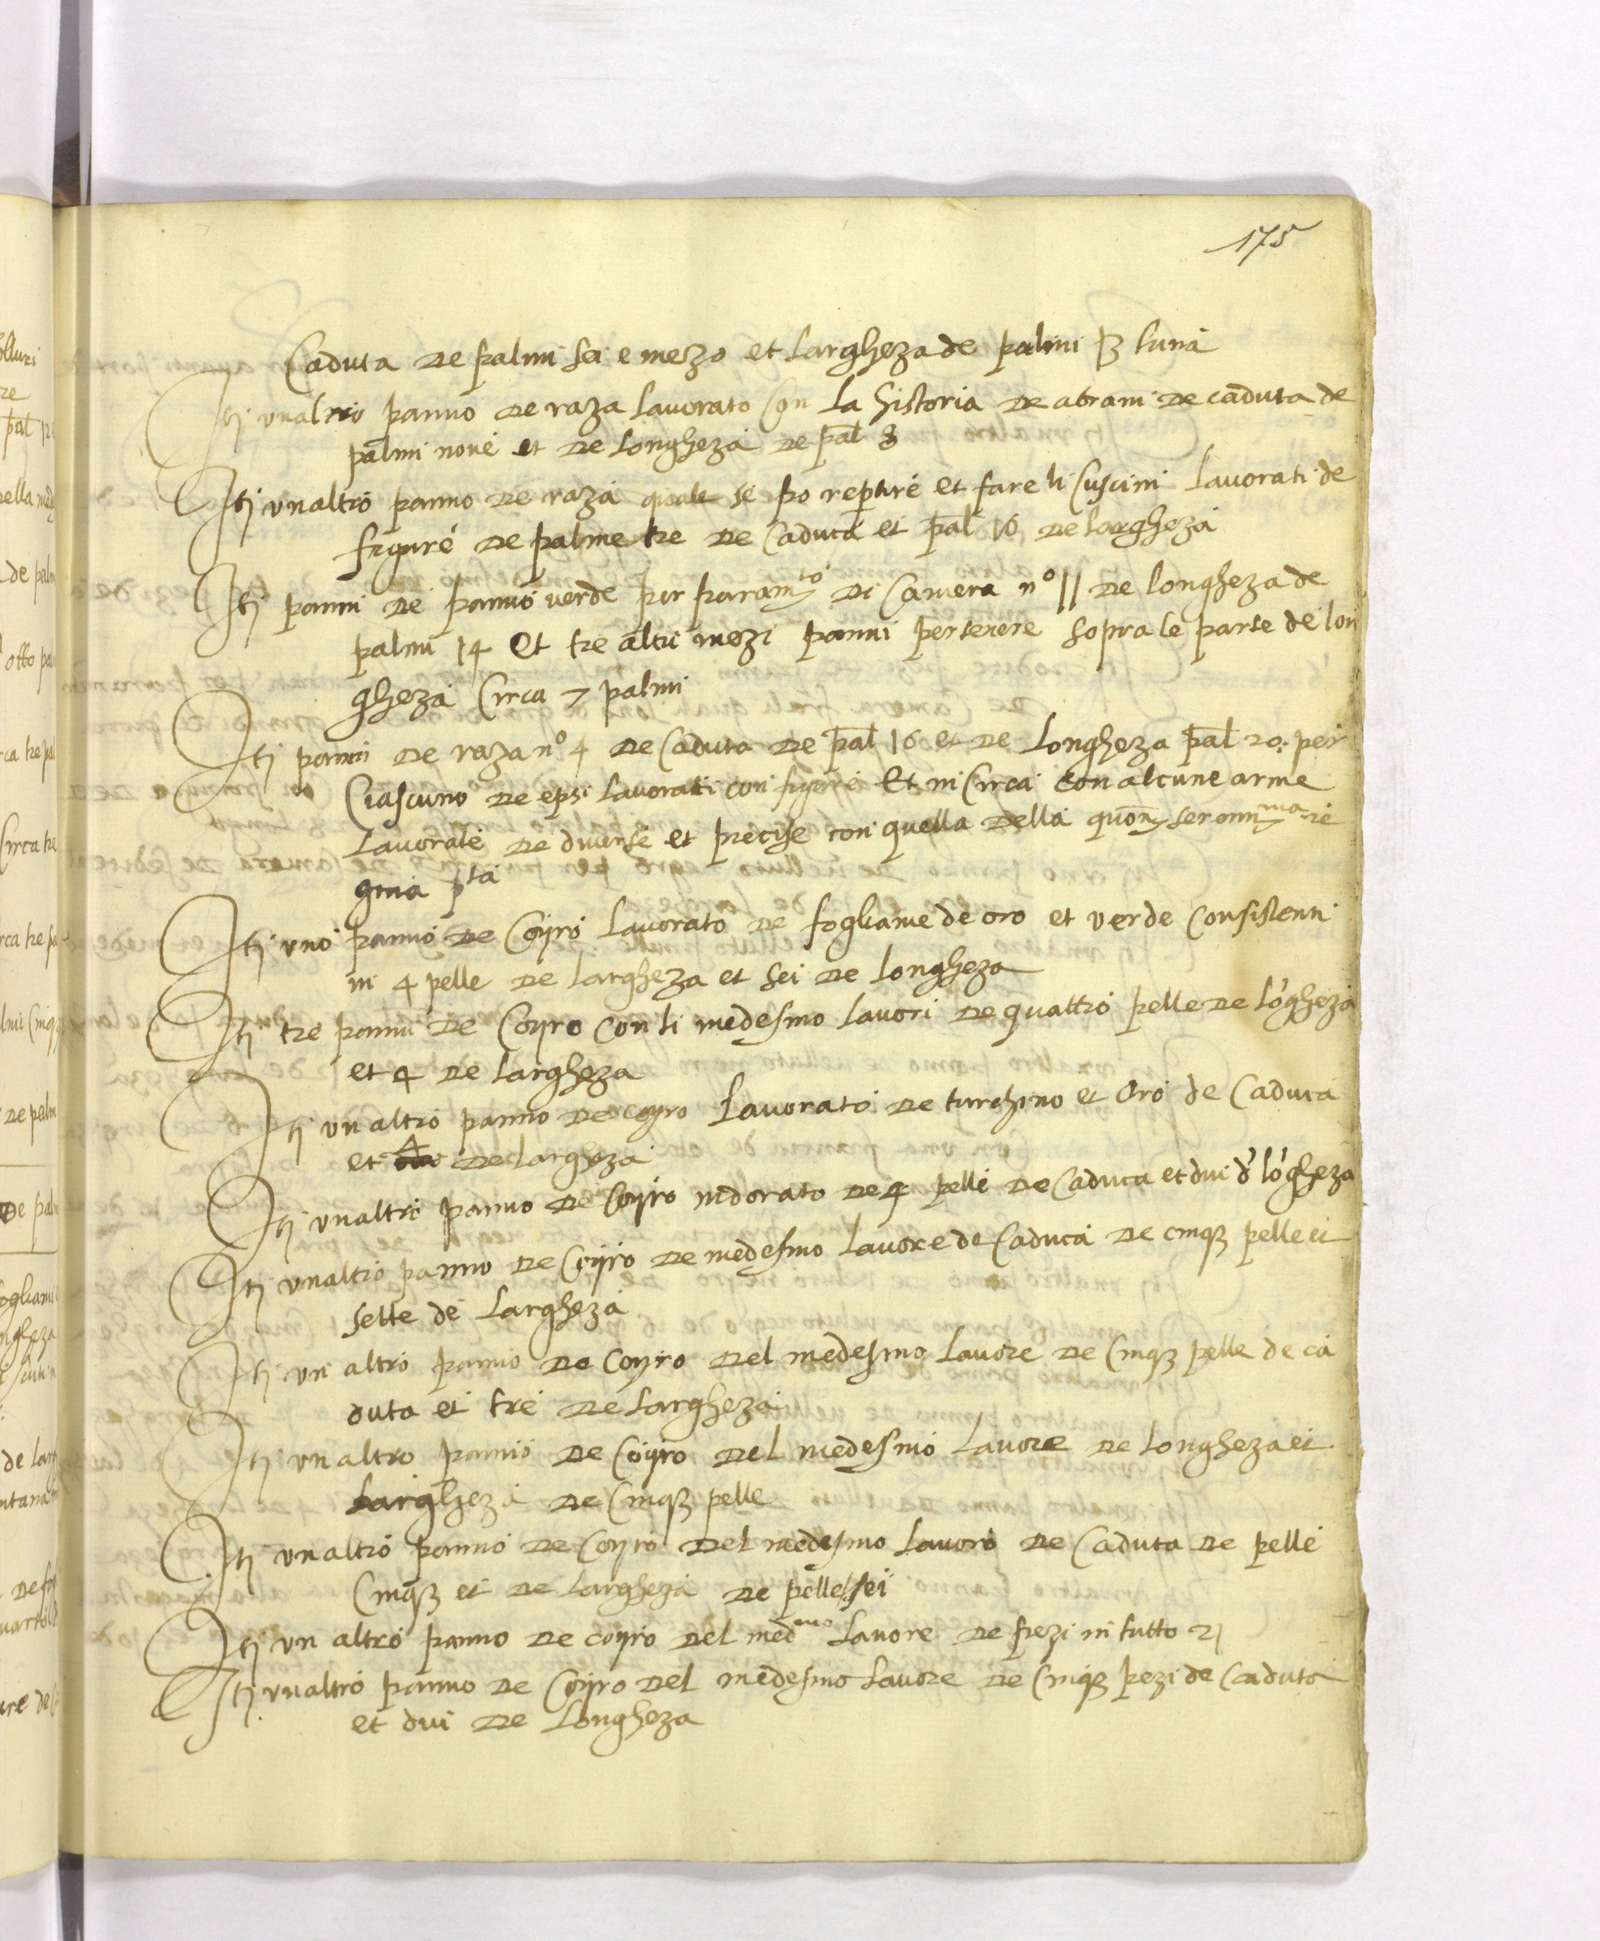 175
Caduta de palmi sei e mezo et largheza de palmi p luna
Itj unaltro panno de raza lavorato con la historia de abram de caduta de
palmi nove et de longheza de pal 8
Itj unaltro panno de raza quale se po repture et fare li cuscini lavorati de
figure de palme tre de caduta et pal 16 de largheza
Itj panni de panno verde per paramto di camera no 11 de longheza de
palmi 14 et tre altri mezi panni per sopra le parte de lon
gheza circa 7 palmi
Itj panni de raza no 4 de caduta de pal 16 et de longheza pal 20: per
ciascuno de epsi lavorati con figure et in circa con alcune arme
lavorate de diverse et precise con quella della quonj serenma re
gina pta
Itj uno panno de coyro lavorato de fogliame de oro et verde consistenti
in 4 pelle de largheza et sei de longheza
Itj tre panni de coyro con li medesmo lavori de quattro pelle de lógheza
et 4 de largheza
Itj un altro panno de coyro lavorato de turchino et oro de caduta
et 4 de largheza
Itj unaltro panno de coyro indorato de 4 pelle de caduta et dui d' lógheza
Itj unaltro panno de coyro de medesmo lavore de caduta de cinq pelle et
sette de largheza
Itj un altro panno de coyro del medesmo lavore de cinq pelle de ca
duta et tre de largheza
Itj un altro panno de coyro del medesmo lavore de longheza et
largheza de cinq pelle
Itj unaltro panno de coyro del medesmo lavoro de caduta de pelle
cinq et de largheza de pelle sei
Itj un altro panno de coyro del medmo lavore de pezi in tutto 21
Itj unaltro panno de coyro del medesmo lavore de cinq pezi de caduta
et dui de longheza